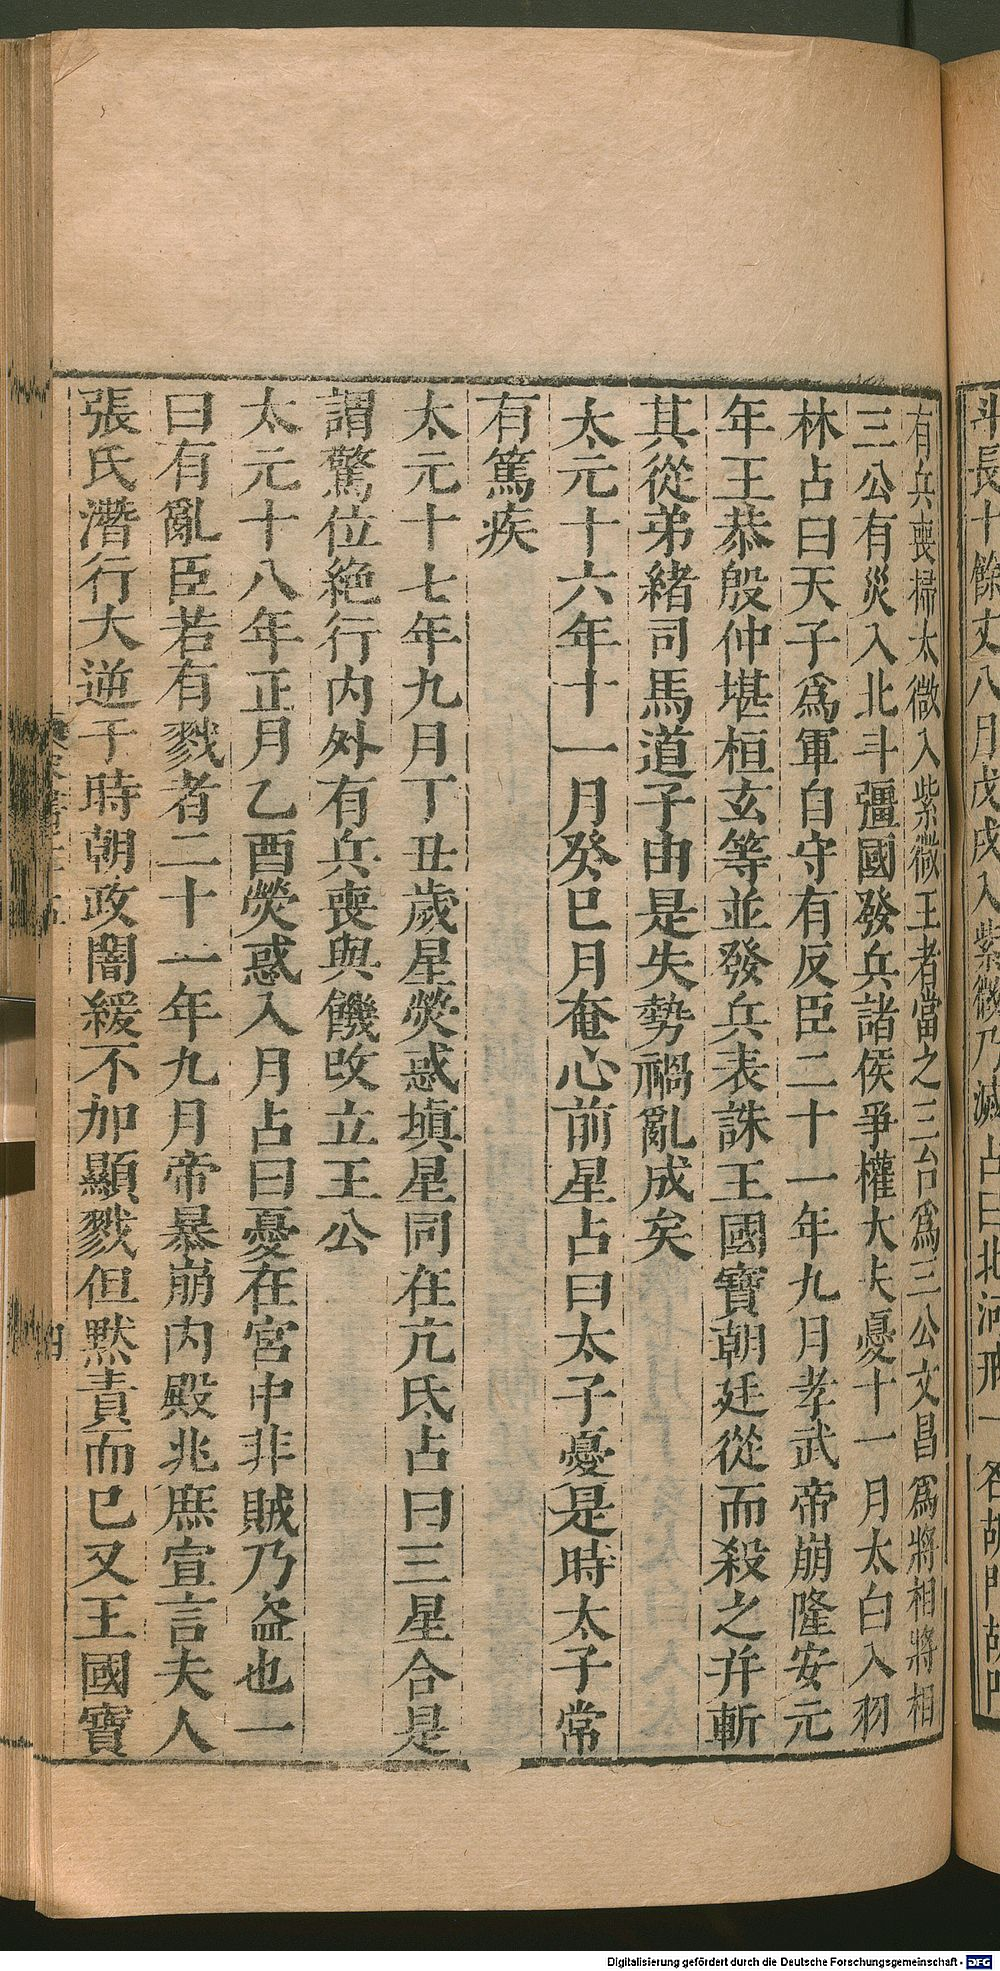 斗長十餘丈八月戊戌入紫微乃滅占曰北河戒一名胡門胡門
有兵喪掃太微入紫微王者當之三台爲三公文昌爲將相將相
三公有災入北斗彊國發兵諸侯爭權大夫憂十一月太白入羽
林占曰天子爲軍自守有反臣二十一年九月孝武帝崩隆安元
年王恭殷仲堪桓玄等並發兵表誅王國寶朝廷從而殺之并斬
其從弟緒司馬道子由是失勢禍亂成矣
太元十六年十一月癸巳月奄心前星占曰太子憂是時太子常
有篤疾
太元十七年九月丁丑歲星熒惑塡星同在亢氐占曰三星合是
謂驚位絶行內外有兵喪與饑改立王公
太元十八年正月乙酉熒惑入月占曰憂在宮中非賊乃盜也一
曰有亂臣若有戮者二十一年九月帝暴崩內殿兆庶宣言夫人
張氏潛行大逆于時朝政闇緩不加顯戮但默責而已又王國寶
四
Digitalisierung gefördert durch die Deutsche Forschungsgemeinschaft - DFG